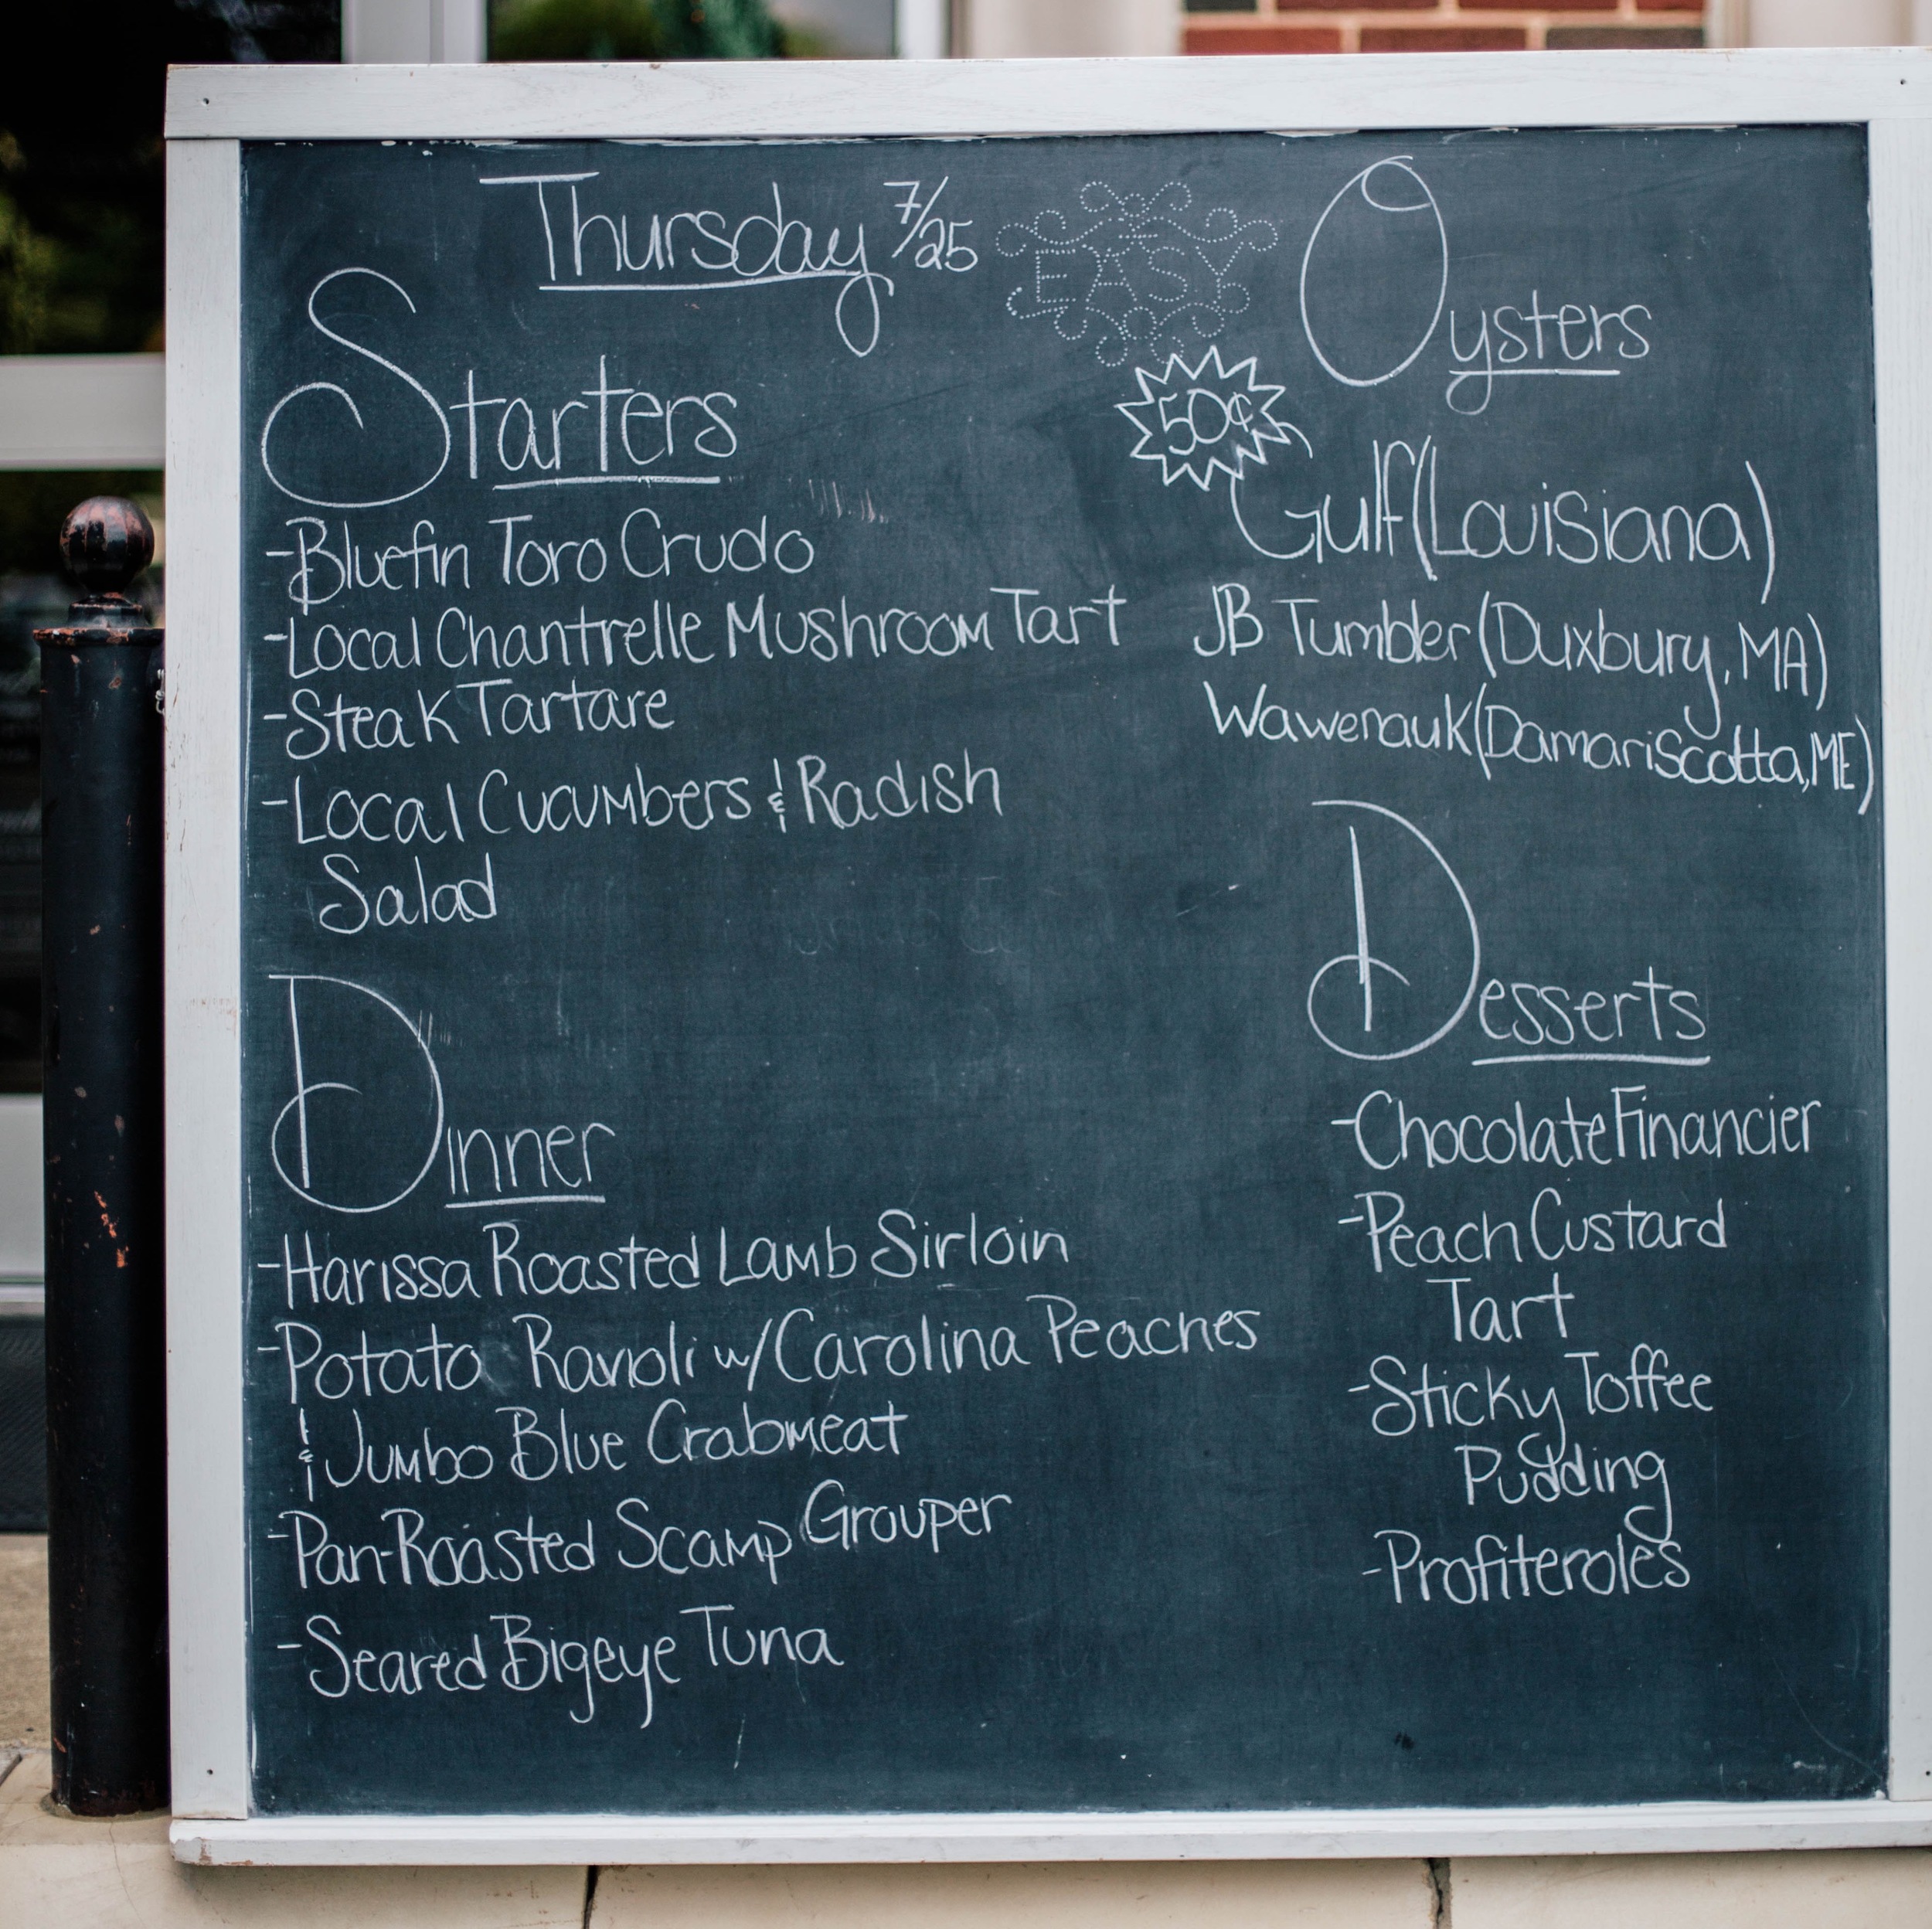 Thursday 7/25
EASY
Starters
-Bluefin Toro Crudo
-Local Chantrelle Mushroom Tart
-Steak Tartare
-Local Cucumbers & Radish
Salad
Dinner
-Harissa Roasted Lamb Sirloin
-Potato Ravioli w/ Carolina Peaches
& Jumbo Blue Crabmeat
-Pan-Roasted Scamp Grouper
-Seared Bigeye Tuna
Oysters
50¢
Gulf (Louisiana)
JB Tumbler (Duxbury, MA)
Wawenauk (Damariscotta, ME)
Desserts
-Chocolate Financier
-Peach Custard
Tart
-Sticky Toffee
Pudding
-Profiteroles